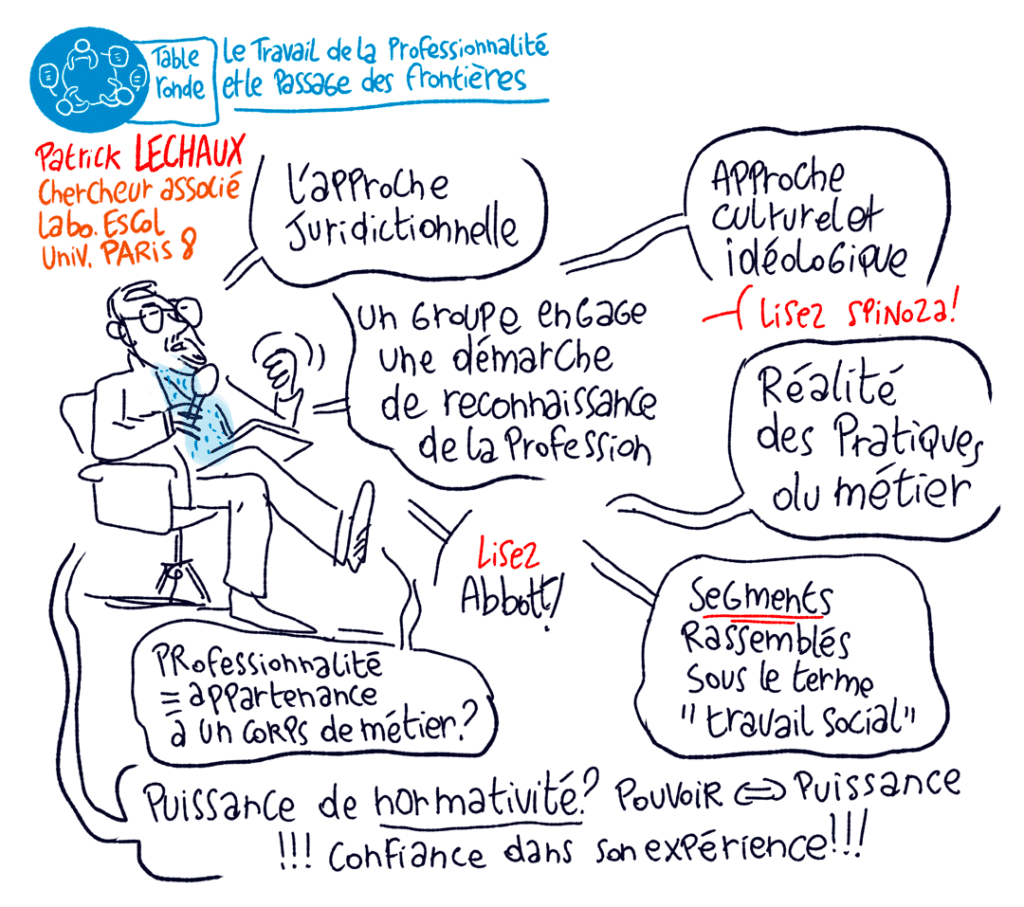 Table ronde
Le Travail de la Professionnalité
et le Passage des frontières
Patrick LECHAUX
Chercheur associé
Labo. ESCOL
Univ. PARIS 8
L'approche
Juridictionnelle
Approche
culturel et
idéologique
Lisez SPINOZA!
Un Groupe engage
une démarche
de reconnaissance
de la Profession
Réalité
des Pratiques
du métier
Lisez
Abbott!
Segments
Rassemblés
sous le terme
"travail social"
PRofessionnalité
= appartenance
à un corps de métier?
Puissance de normativité? Pouvoir ⇔ Puissance
!!! Confiance dans son expérience!!!